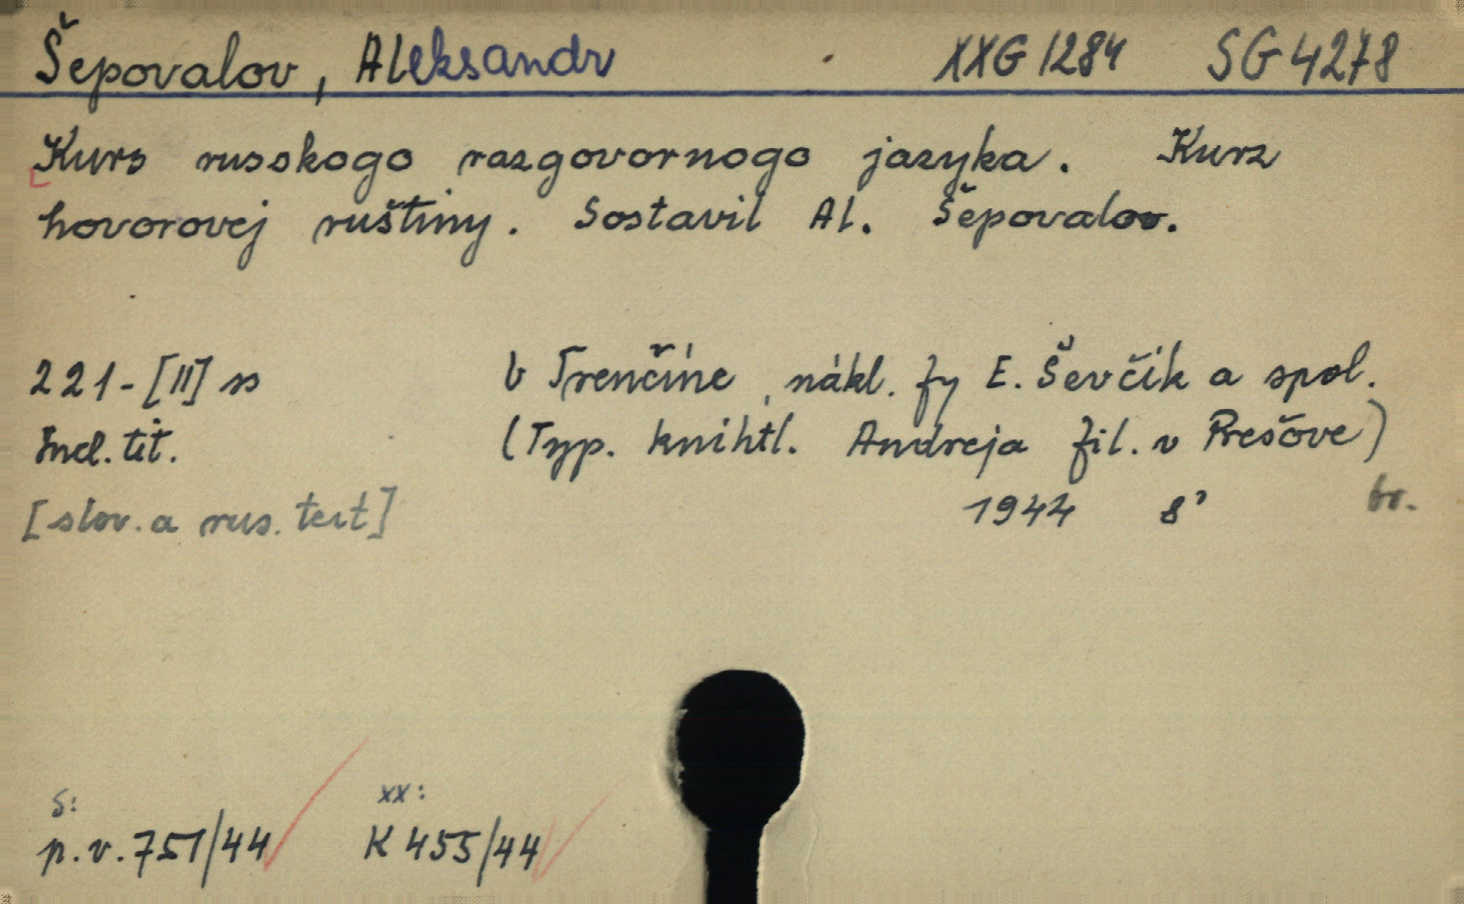 Šepovalov, Aleksandr XXG 1284 SG 4278
Kurs russkogo razgovornogo jazyka. Kurz
hovorovej ruštiny. Sostavil Al. Šepovalov.
221-[II] ss V Trenčíne, nákl. fy E. Ševčík a spol.
Incl. tit. (Typ. kníhtl. Andreja fil. v Prešove)
[slov. a rus. text] 1944 8° br.
S: XX:
p.v. 751/44 K 455/44